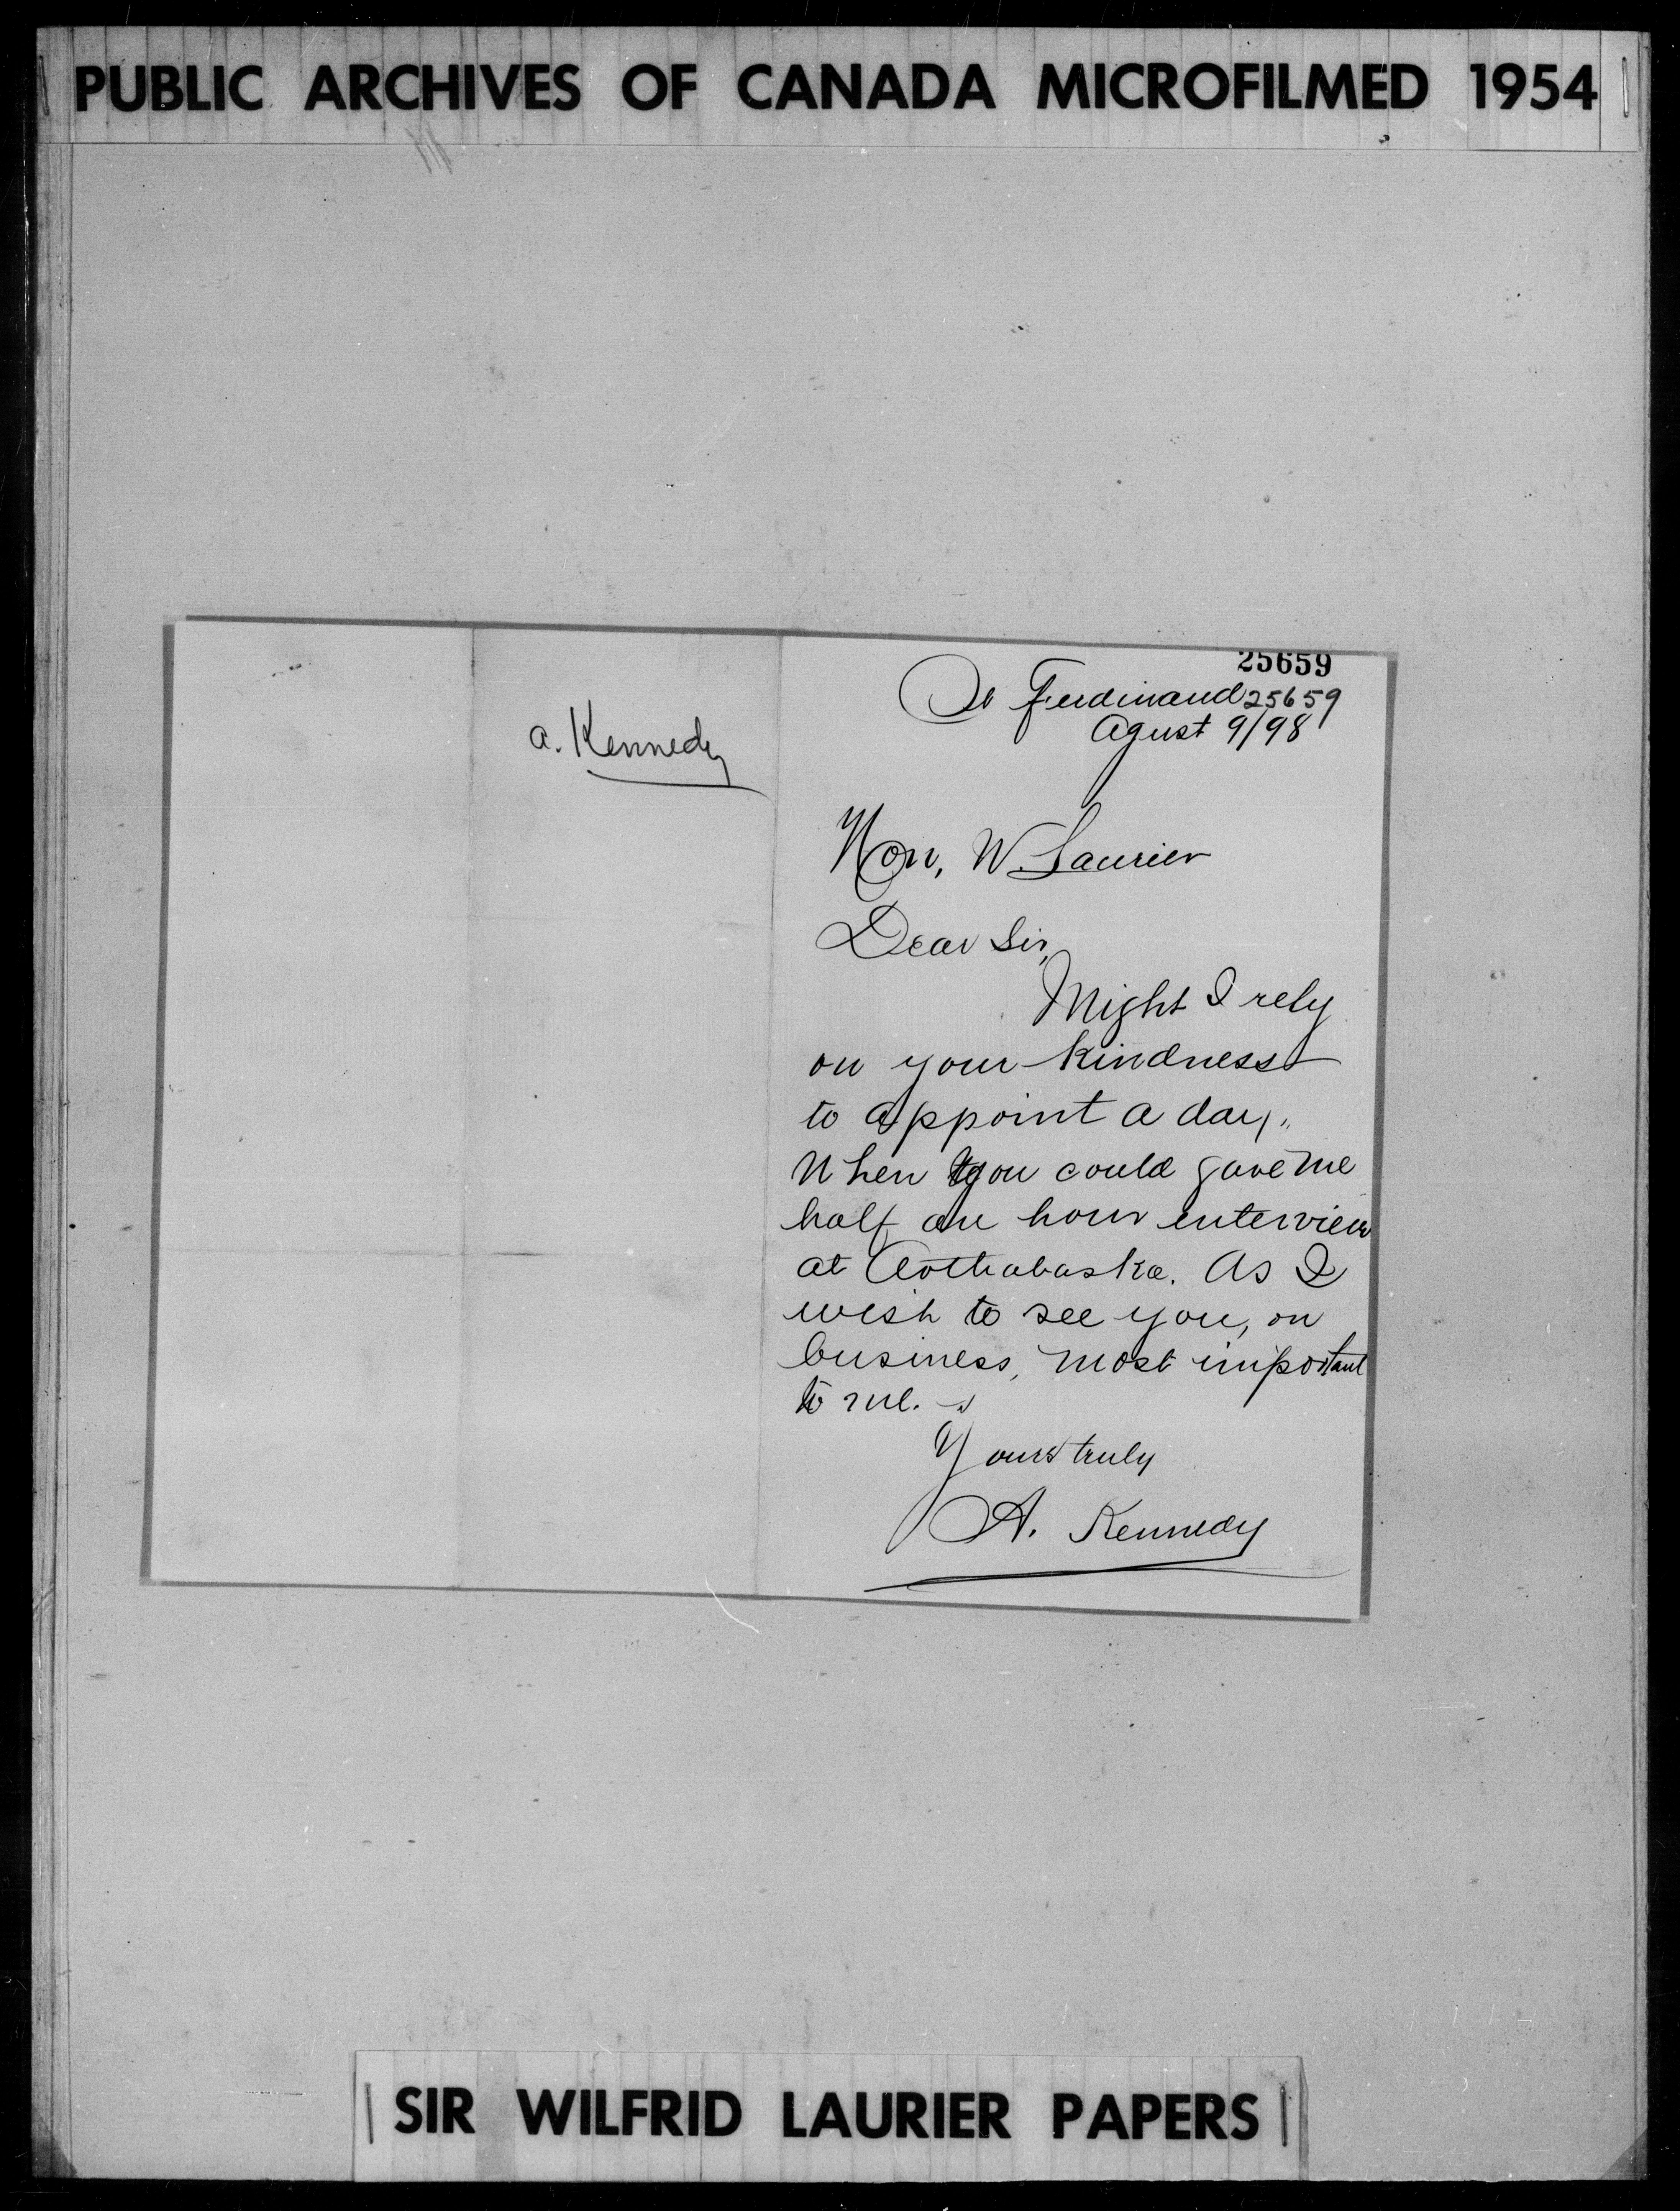 PUBLIC ARCHIVES OF CANADA MICROFILMED 1954
a. Kennedy
25659
St Ferdinand 25659
Agust 9/98
Hon, W. Laurier
Dear Sir,
Might I rely
on your kindness
to appoint a day,
When you could gave me
half an hour interview
at Arthabaska. As I
wish to see you, on
business, most important
to me.
Yours truly
A. Kennedy
SIR WILFRID LAURIER PAPERS